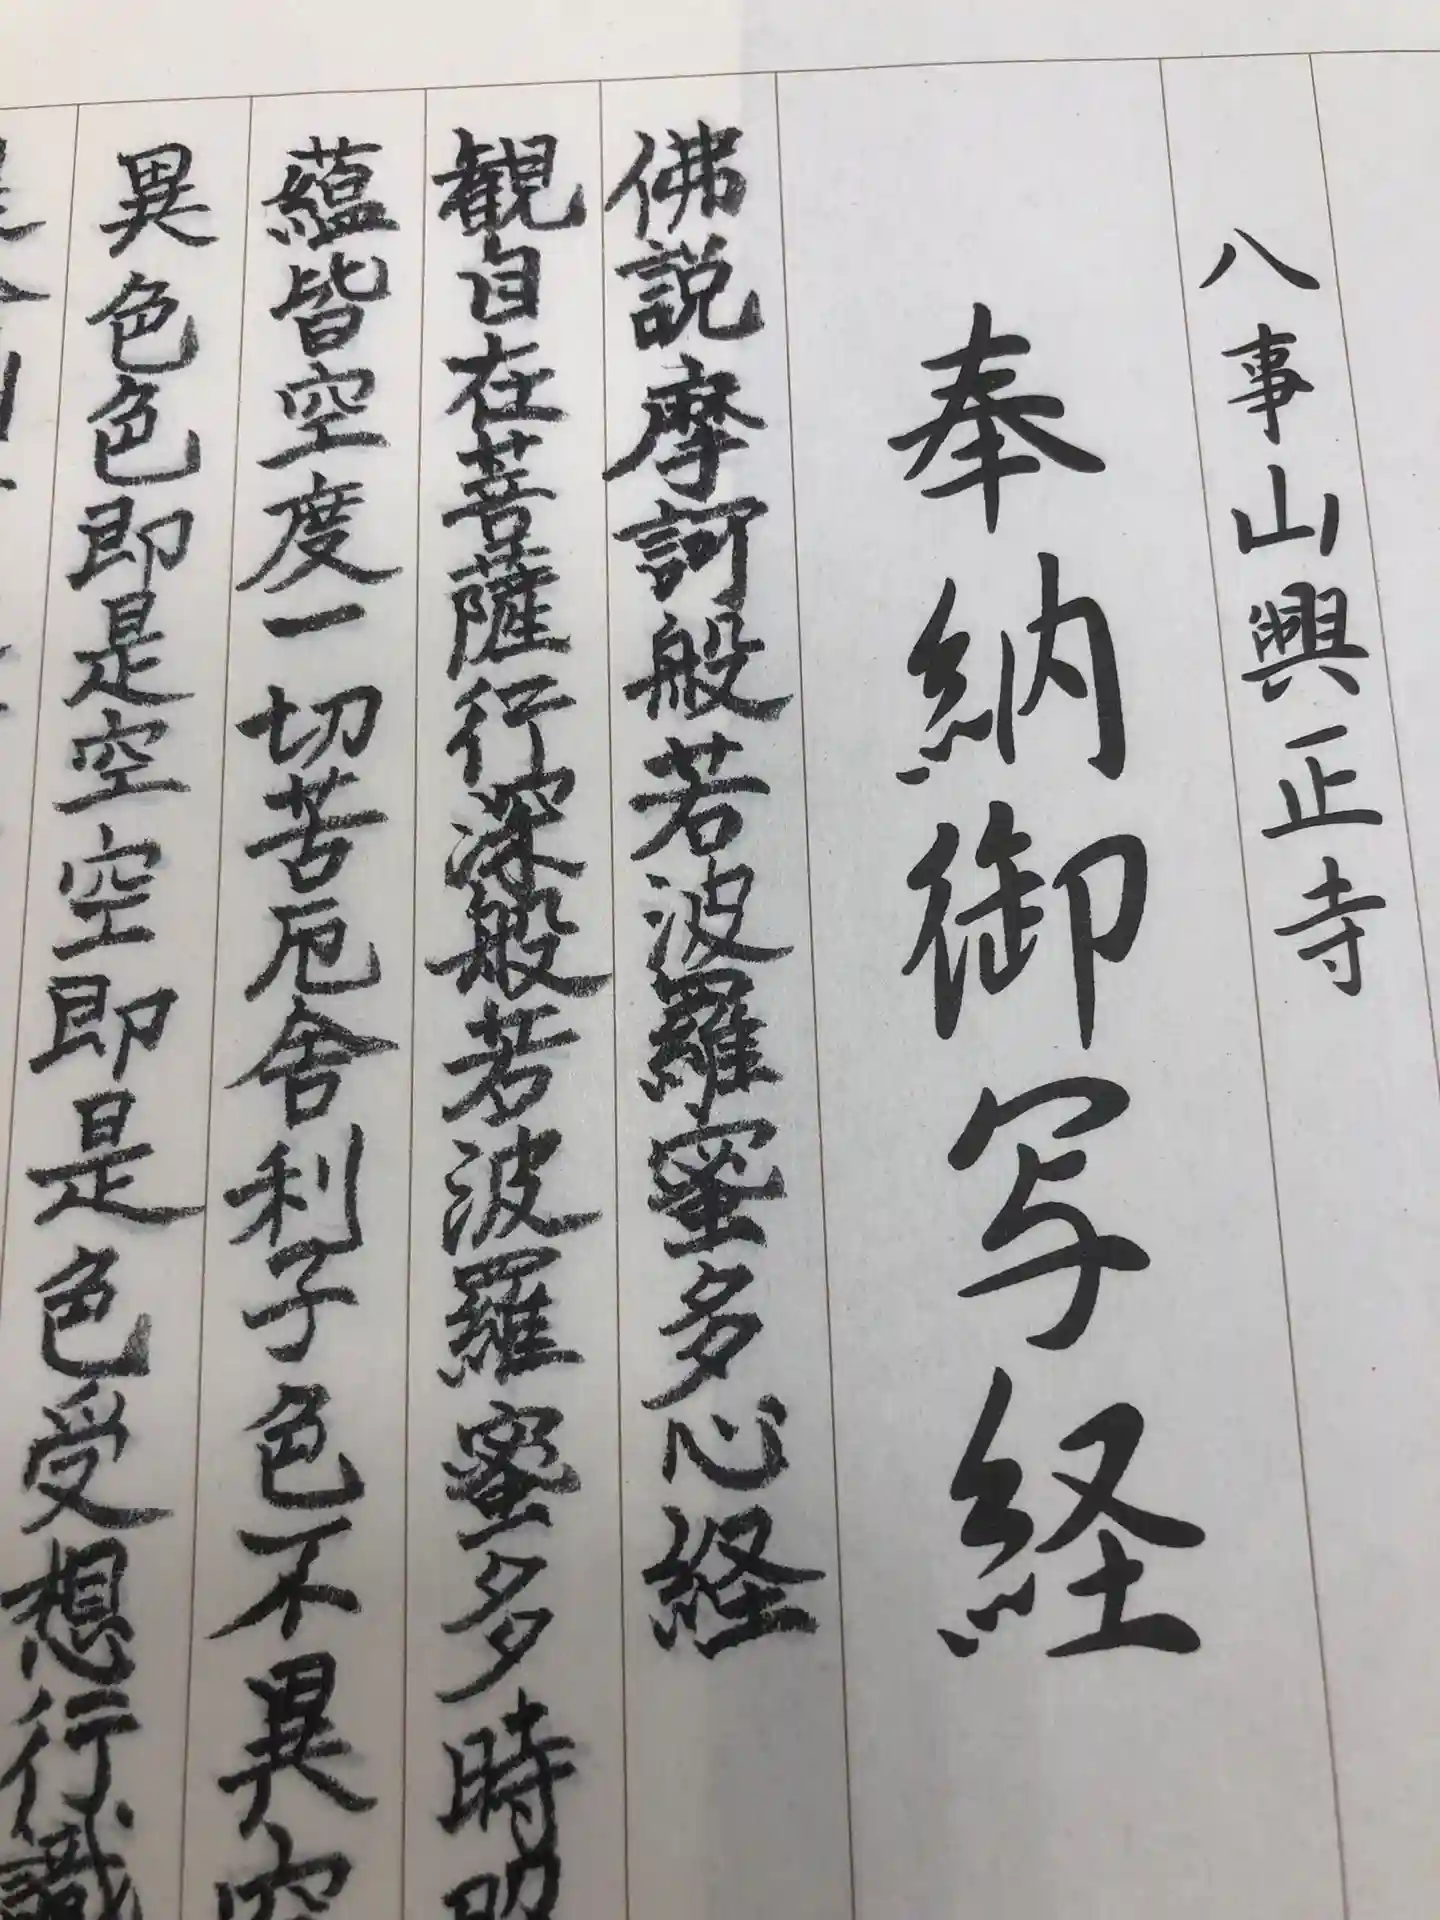 八事山興正寺
奉納御写経
佛説摩訶般若波羅蜜多心経
観自在菩薩行深般若波羅蜜多時照
蘊皆空度一切苦厄舎利子色不異空
異色色即是空空即是色受想行識